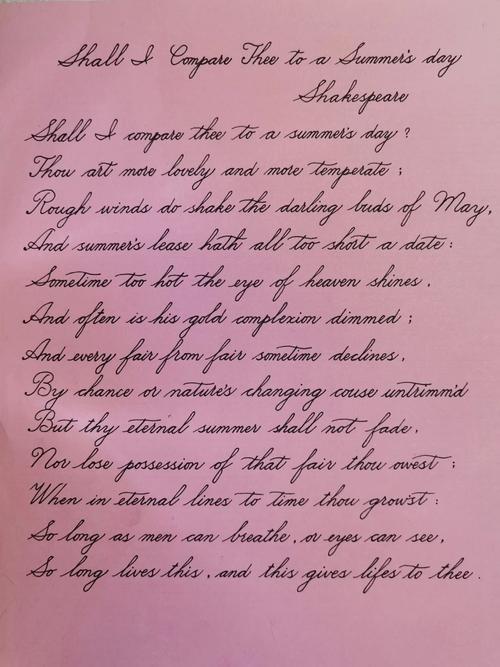 Shall I Compare Thee to a Summer's day
Shakespeare
Shall I compare thee to a summer's day ?
Thou art more lovely and more temperate ;
Rough winds do shake the darling buds of May,
And summer's lease hath all too short a date :
Sometime too hot the eye of heaven shines ,
And often is his gold complexion dimmed ;
And every fair from fair sometime declines ,
By chance or nature's changing couse untrimm'd
But thy eternal summer shall not fade ,
Nor lose possession of that fair thou owest ;
When in eternal lines to time thou grow'st :
So long as men can breathe , or eyes can see ,
So long lives this , and this gives lifes to thee .